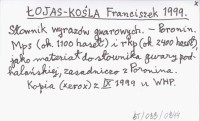 ŁOJAS-KOŚLA Franciszek 1999.
Słownik wyrazów gwarowych. – Poronin.
Mps (ok. 1100 haseł) i rkp (ok. 2400 haseł),
jako materiał do słownika gwary pod-
halańskiej, zasadniczo z Poronina.
Kopia (xerox) z IX 1999 u WHP.